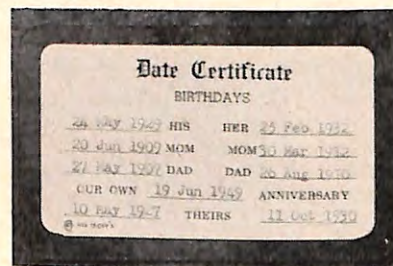 Date Certificate
BIRTHDAYS
24 May 1929 HIS HER 25 Feb 1932
20 Jun 1909 MOM MOM 30 Mar 1912
27 May 1907 DAD DAD 26 Aug 1910
OUR OWN 19 Jun 1949 ANNIVERSARY
10 May 1927 THEIRS 11 Oct 1930